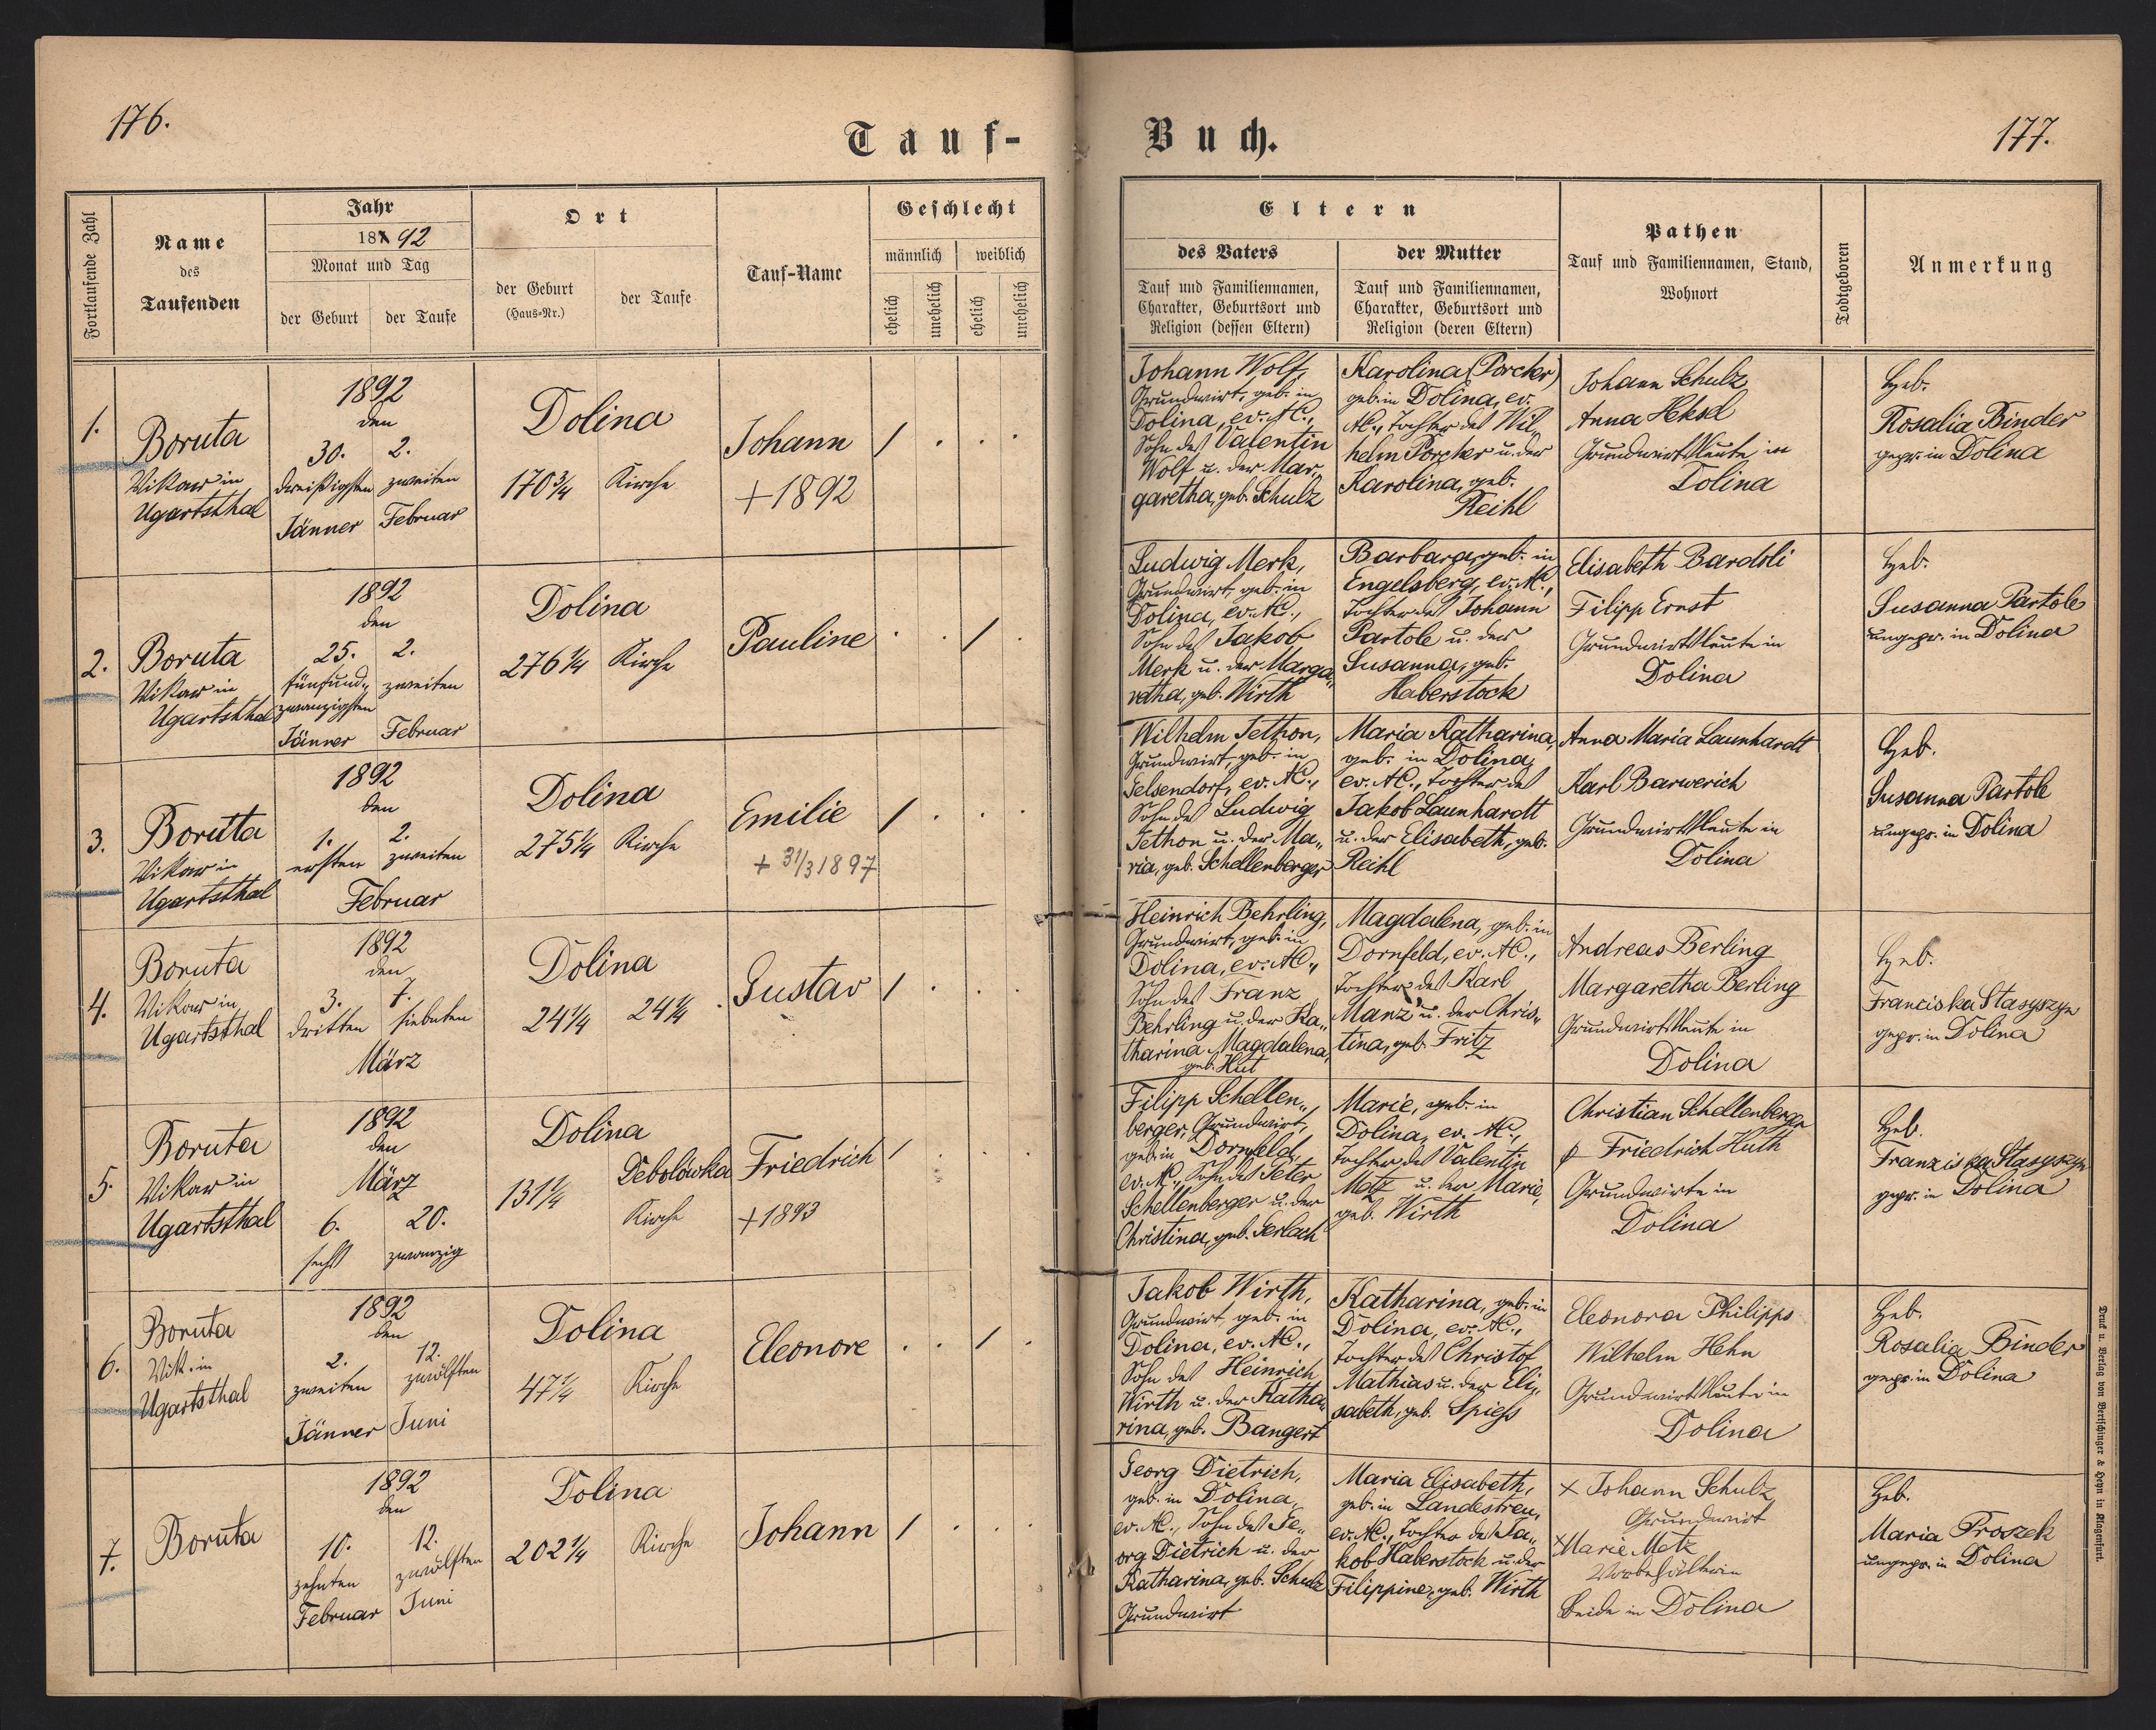 176.
Tauf-
Fortlaufende Zahl
Name
des
Taufenden
Jahr
187 92
Monat und Tag
der Geburt
der Taufe
Ort
der Geburt
(Haus-Nr.)
der Taufe
Tauf-Name
Geschlecht
männlich
weiblich
ehelich
unehelich
ehelich
unehelich
1.
Boruta
Vikar in
Ugartsthal
1892
den
30. 2.
dreißigsten zweiten
Jänner Februar
Dolina
170 3/4 Kirche
Johann
+ 1892
/ . . .
2.
Boruta
Vikar in
Ugartsthal
1892
den
25. 2.
fünfund„ zweiten
zwanzigsten
Jänner Februar
Dolina
276 1/4 Kirche
Pauline
. . / .
3.
Boruta
Vikar in
Ugartsthal
1892
den
1. 2.
ersten zweiten
Februar
Dolina
275 1/4 Kirche
Emilie
+ 31/3 1897
/ . . .
4.
Boruta
Vikar in
Ugartsthal
1892
den
3. 7.
dritten siebenten
März
Dolina
24 1/4 24 1/4
Gustav
/ . . .
5.
Boruta
Vikar in
Ugartsthal
1892
den
März
6. 20.
sechst zwanzig
Dolina
131 1/4 Debolówka
Kirche
Friedrich
+ 1893
/ . . .
6.
Boruta
Vik. in
Ugartsthal
1892
den
2. 12.
zweiten zwölften
Jänner Juni
Dolina
47 1/4 Kirche
Eleonore
. . / .
7.
Boruta
1892
den
10. 12.
zehnten zwölften
Februar Juni
Dolina
202 1/4 Kirche
Johann
/ . . .
Buch.
177.
Eltern
des Vaters
Tauf und Familiennamen,
Charakter, Geburtsort und
Religion (dessen Eltern)
der Mutter
Tauf und Familiennamen,
Charakter, Geburtsort und
Religion (deren Eltern)
Pathen
Tauf und Familiennamen, Stand,
Wohnort
Todtgeboren
Anmerkung
Johann Wolf,
Grundwirt, geb. in
Dolina, ev. AC.,
Sohn des Valentin
Wolf u. der Mar„
garetha, geb. Schulz
Karolina (Porcher)
geb. in Dolina, ev.
AC., Tochter des Wil„
helm Porcher u. der
Karolina, geb.
Reihl
Johann Schulz
Anna
Grundwirtsleute in
Dolina
Heb.
Rosalia Binder
gepr. in Dolina
Ludwig Merk,
Grundwirt, geb. in
Dolina, ev. AC.,
Sohn des Jakob
Merk u. der Marga„
retha, geb. Wirth
Barbara, geb. in
Engelsberg, ev. AC.,
Tochter des Johann
Partole u. der
Susanna, geb.
Haberstock
Elisabeth Bardoli
Filipp Ernst
Grundwirtsleute in
Dolina
Heb.
Susanna Partole
ungepr. in Dolina
Wilhelm Jethon,
Grundwirt, geb. in
Gelsendorf, ev. AC.,
Sohn des Ludwig
Jethon u. der Ma„
ria, geb. Schellenberger
Maria Katharina,
geb. in Dolina,
ev. AC., Tochter des
Jakob Launhardt
u. der Elisabeth, geb.
Reihl
Anna Maria Launhardt
Karl Barwerich
Grundwirtsleute in
Dolina
Heb.
Susanna Partole
ungepr. in Dolina
Heinrich Behrling,
Grundwirt, geb. in
Dolina, ev. AC.,
Sohn des Franz
Behrling u. der Ka„
tharina Magdalena,
geb. Hut
Magdalena, geb. in
Dornfeld, ev. AC.,
Tochter des Karl
Manz u. der Chris„
tina, geb. Fritz
Andreas Berling
Margaretha Berling
Grundwirtsleute in
Dolina
Heb.
Franciska Stasyszyn
gepr. in Dolina
Filipp Schellen„
berger, Grundwirt,
geb. in Dornfeld,
ev. AC., Sohn des Peter
Schellenberger u. der
Christina, geb. Gerlach
Marie, geb. in
Dolina, ev. AC.,
Tochter des Valentin
Metz u. der Marie,
geb. Wirth
Christian Schellenberger
Friedrich Huth
Grundwirte in
Dolina
Heb.
Franziska Stasyszyn
gepr. in Dolina
Jakob Wirth,
Grundwirt, geb. in
Dolina, ev. AC.,
Sohn des Heinrich
Wirth u. der Katha„
rina, geb. Bangert
Katharina, geb. in
Dolina, ev. AC.,
Tochter des Christof
Mathias u. der Eli„
sabeth, geb. Spieß
Eleonora Philipps
Wilhelm Hehn
Grundwirtsleute in
Dolina
Heb.
Rosalia Binder
gepr. in Dolina
Georg Dietrich,
geb. in Dolina,
ev. AC., Sohn des Ge„
org Dietrich u. der
Katharina, geb. Schulz
Grundwirt
Maria Elisabeth,
geb. in Landestreu,
ev. AC., Tochter des Ja„
kob Haberstock u. der
Filippine, geb. Wirth
x Johann Schulz
Grundwirt
x Marie Metz
beide in Dolina
Heb.
Maria Proszek
ungepr. in Dolina
Druck u. Verlag von Bertschinger & Heyn in Klagenfurt.